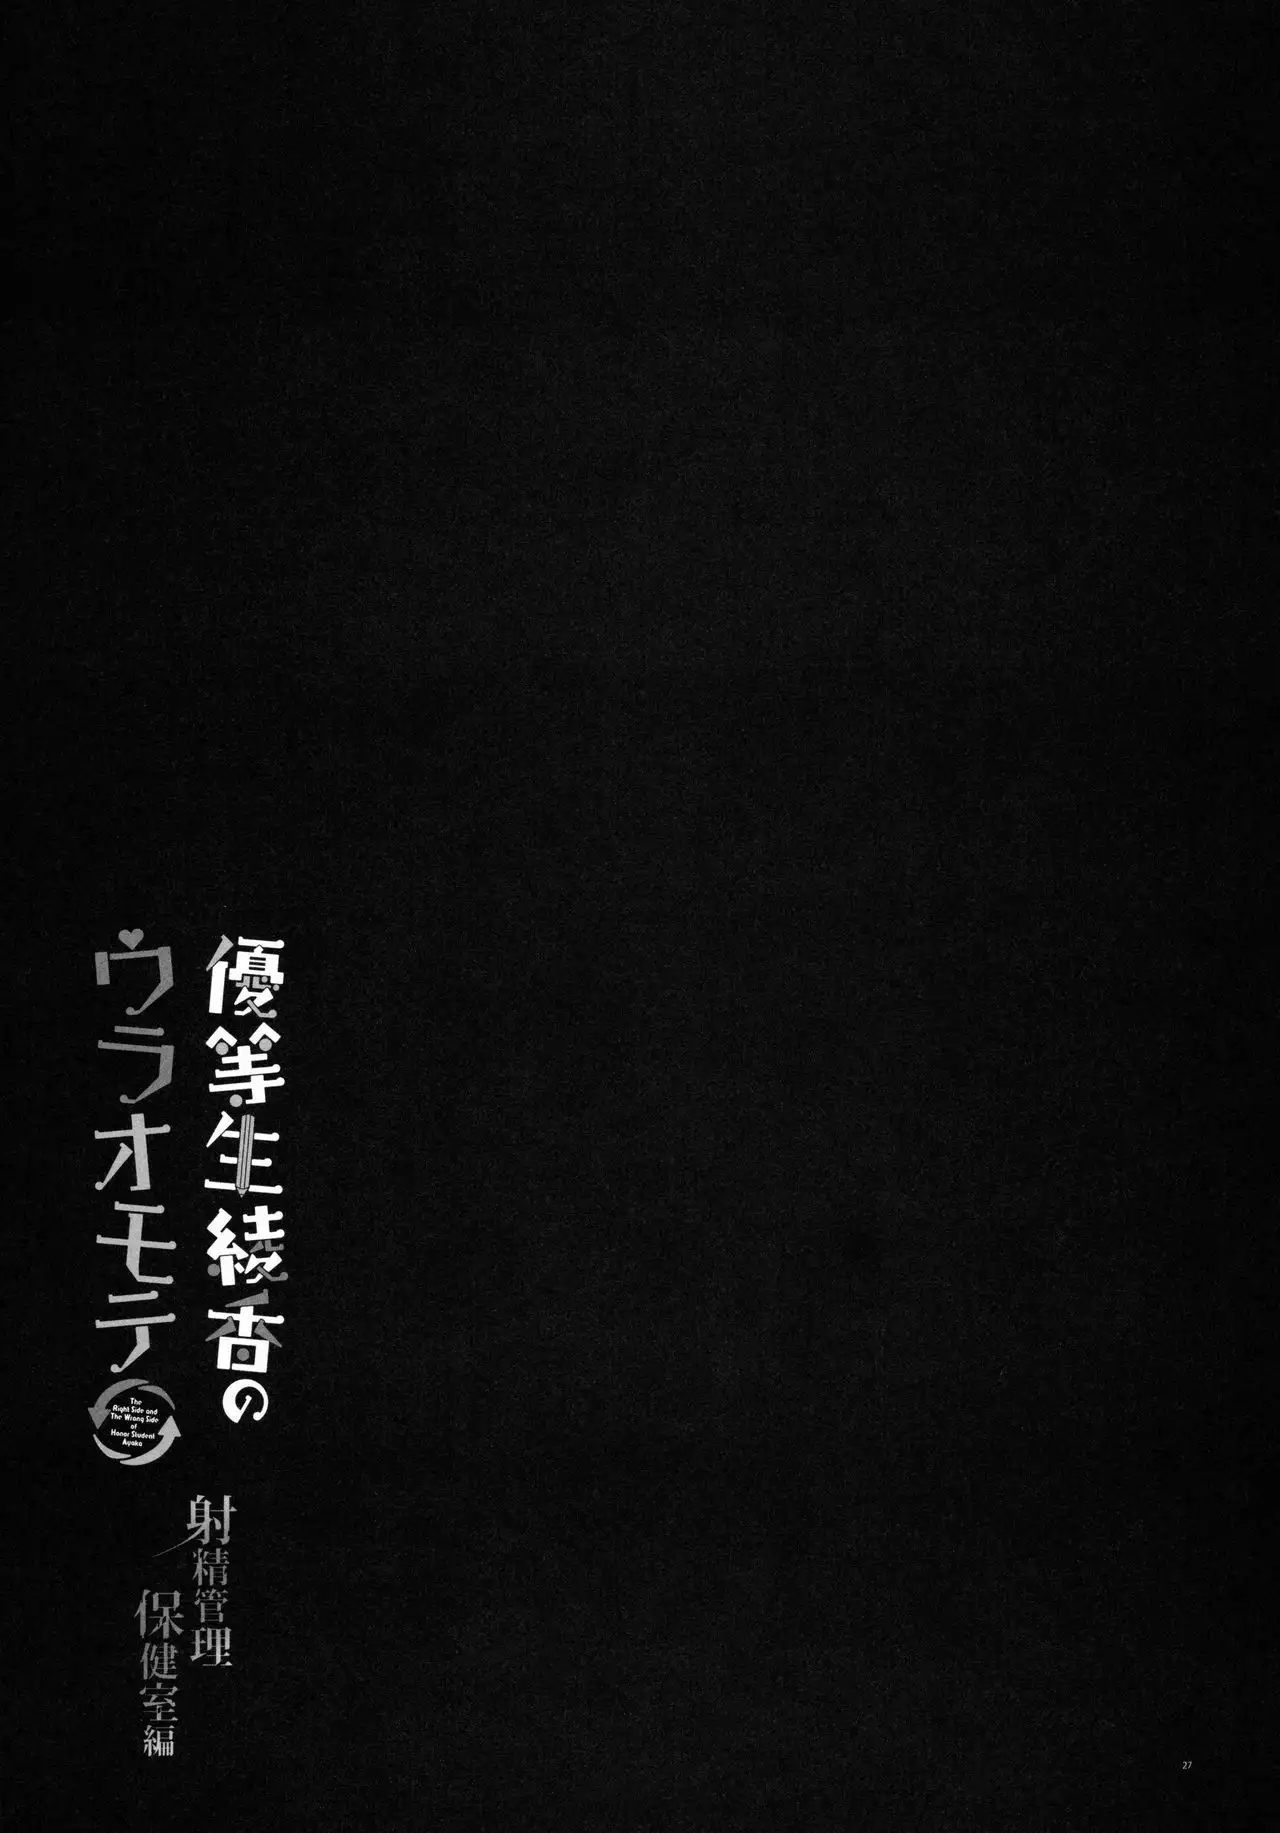 優等生綾香の
ウラオモテ
The
Right Side and
The Wrong Side
of
Honor Student
Ayaka
射精管理
保健室編
27